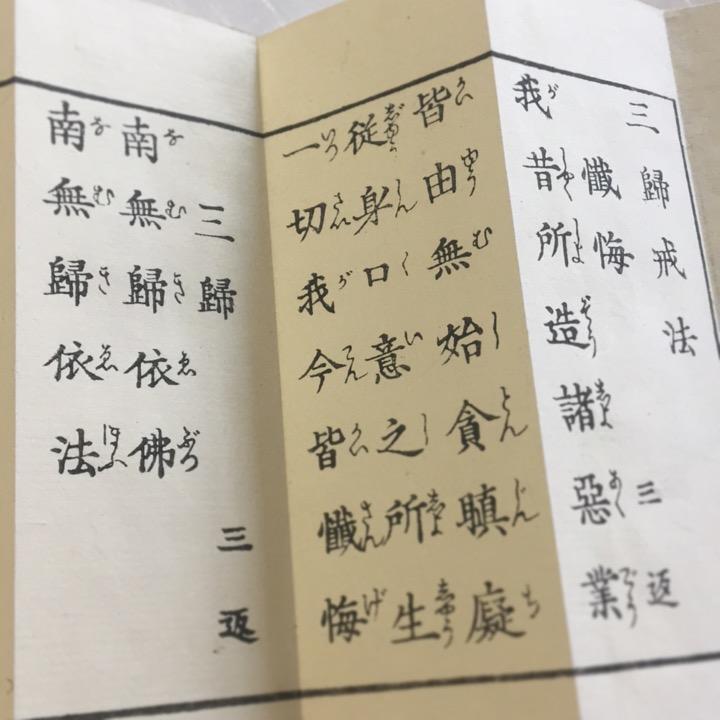 三歸戒法
懺悔 三返
我昔所造諸惡業
皆由無始貪瞋癡
從身口意之所生
一切我今皆懺悔
三歸 三返
南無歸依佛
南無歸依法